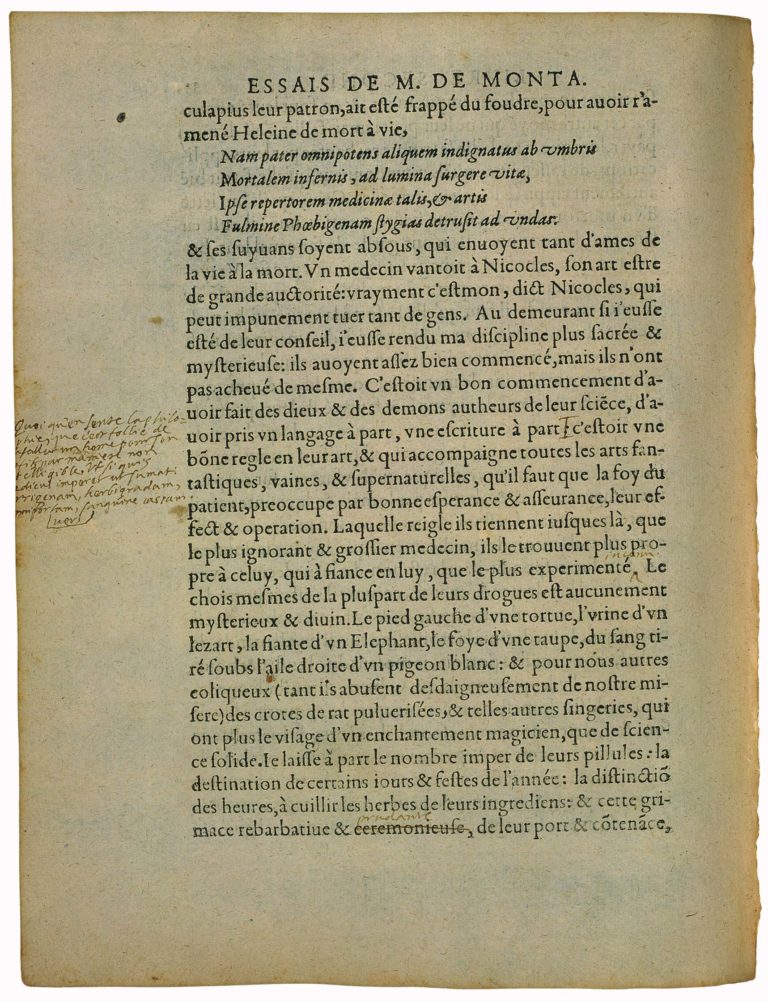 ESSAIS DE M. DE MONTA.
culapius leur patron, ait esté frappé du foudre, pour auoir r'a-
mené Heleine de mort à vie,
Nam pater omnipotens aliquem indignatus ab vmbris
Mortalem infernis, ad lumina surgere vitæ,
Ipse repertorem medicinæ talis, & artis
Fulmine Phœbigenam stygias detrusit ad vndas:
& ses suyuans soyent absous, qui enuoyent tant d'ames de
la vie à la mort. Vn medecin vantoit à Nicocles, son art estre
de grande auctorité: vrayment c'estmon, dict Nicocles, qui
peut impunement tuer tant de gens. Au demeurant si i'eusse
esté de leur conseil, i'eusse rendu ma discipline plus sacrée &
mysterieuse: ils auoyent assez bien commencé, mais ils n'ont
pas acheué de mesme. C'estoit vn bon commencement d'a-
uoir fait des dieux & des demons autheurs de leur sciẽce, d'a-
uoir pris vn langage à part, vne escriture à part c'estoit vne
Quoi qu'en sente la philo
phie que c'est follie de
bõne regle en leur art, & qui accompaigne toutes les arts fan-
tastiques, vaines, & supernaturelles, qu'il faut que la foy du
telligible. Vt si quis
patient, preoccupe par bonne esperance & asseurance, leur ef-
dicus imperet ut sumat
rigenam, herbigradam,
fect & operation. Laquelle reigle ils tiennent iusques là, que
domiportam, sanguine cassam
le plus ignorant & grossier medecin, ils le trouuent plus pro-
pre à celuy, qui à fiance en luy, que le plus experimenté. Le
chois mesmes de la pluspart de leurs drogues est aucunement
mysterieux & diuin. Le pied gauche d'vne tortue, l'vrine d'vn
lezart, la fiante d'vn Elephant, le foye d'vne taupe, du sang ti-
ré soubs l'aile droite d'vn pigeon blanc: & pour nous autres
coliqueux (tant ils abusent desdaigneusement de nostre mi-
sere) des crotes de rat puluerisées, & telles autres singeries, qui
ont plus le visage d'vn enchantement magicien, que de scien-
ce solide. Ie laisse à part le nombre imper de leurs pillules: la
destination de certains iours & festes de l'année: la distinctiõ
des heures, à cuillir les herbes de leurs ingrediens: & cette gri-
prudante
mace rebarbatiue & ceremonieuse, de leur port & cõtenãce,